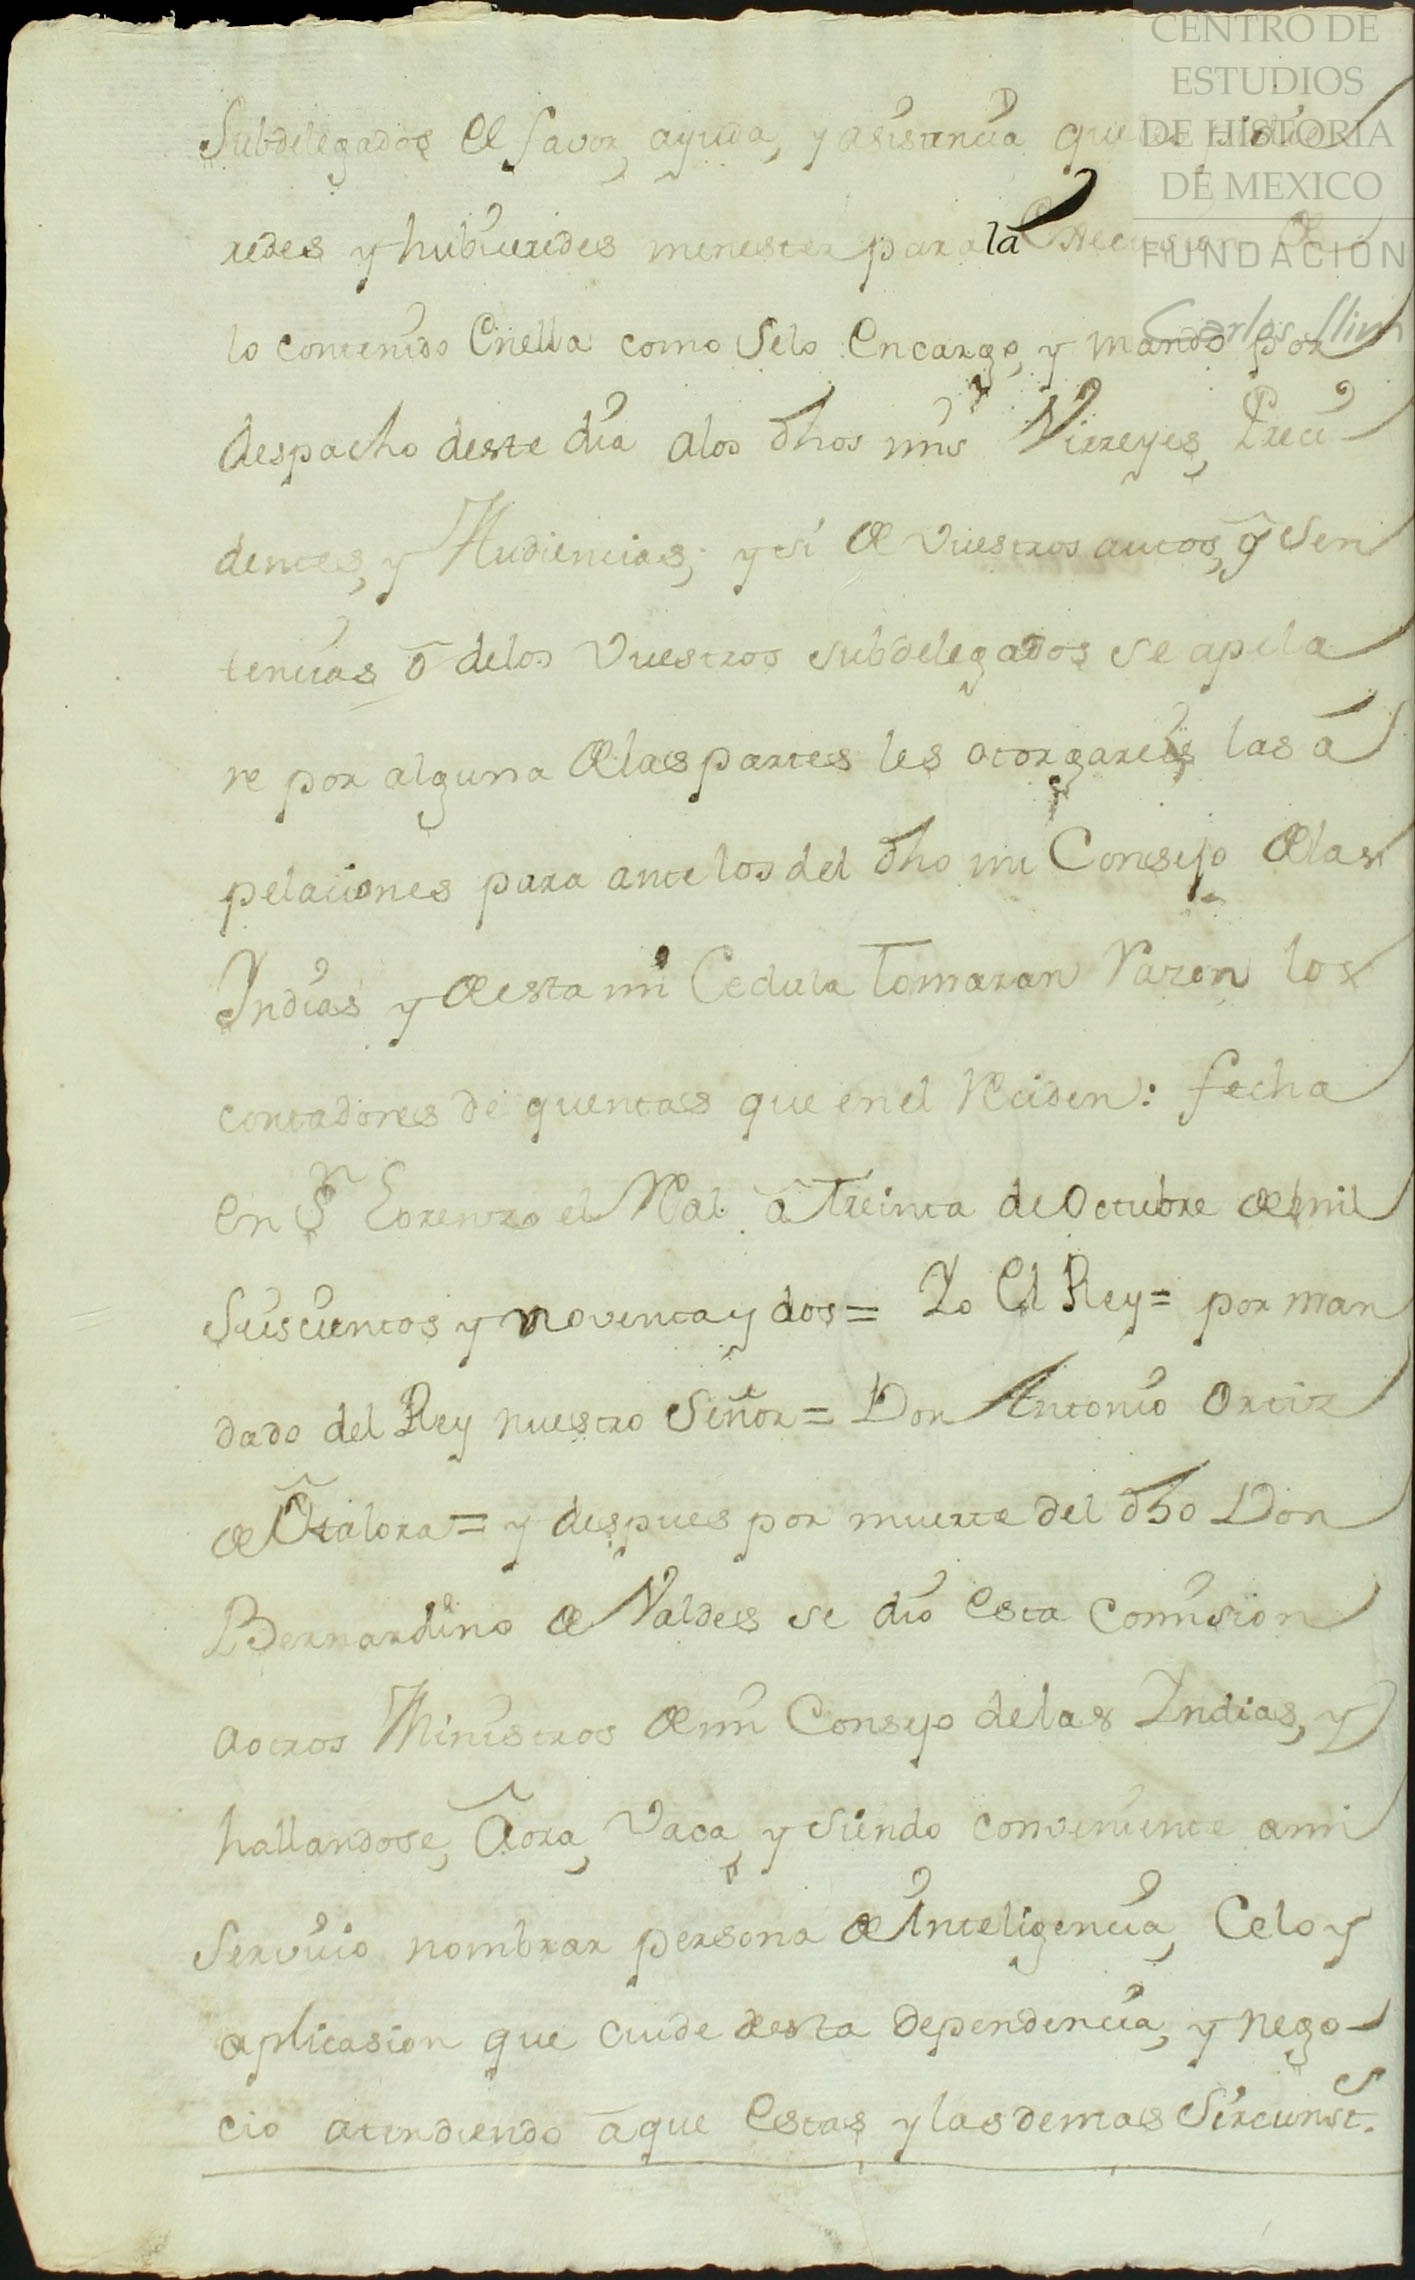 CENTRO DE
ESTUDIOS
DE HISTORIA
DE MEXICO
FUNDACIÓN
Carlos Slim
Subdelegados el favor, ayuda, y asistencia que les pidie
redes y hubieredes menester para la execusion de
lo contenido enella como selo encargo, y mando por
despacho deste dia alos dhos mis Virreyes, Preci-
dentes, y Audiencias; y si de vuestros autos, y Sen
tencias o delos vuestros subdelegados se apela
re por alguna delas partes les otorgareis las a
pelaciones para ante los del dho mi Consejo delas
Indias y desta mi Cedula tomaran razon los
contadores de quentas que enel reciden: fecha
en Sn Lorenzo el Real a treinta de Octubre de mil
Seiscientos y noventa y dos = Yo El Rey = por man
dado del Rey nuestro Señor = Don Antonio Ortiz
de Otalora = y despues por muerte del dho Don
Bernardino de Valdes se dio esta comision
aotros Ministros de mi Consejo delas Indias, y
hallandose, aora, vaca, y siendo conveniente ami
servicio nombrar persona de inteligencia, Celo y
aplicasion que cuide desta dependencia, y nego-
cio atendiendo aque estas y lasdemas Sircunst.